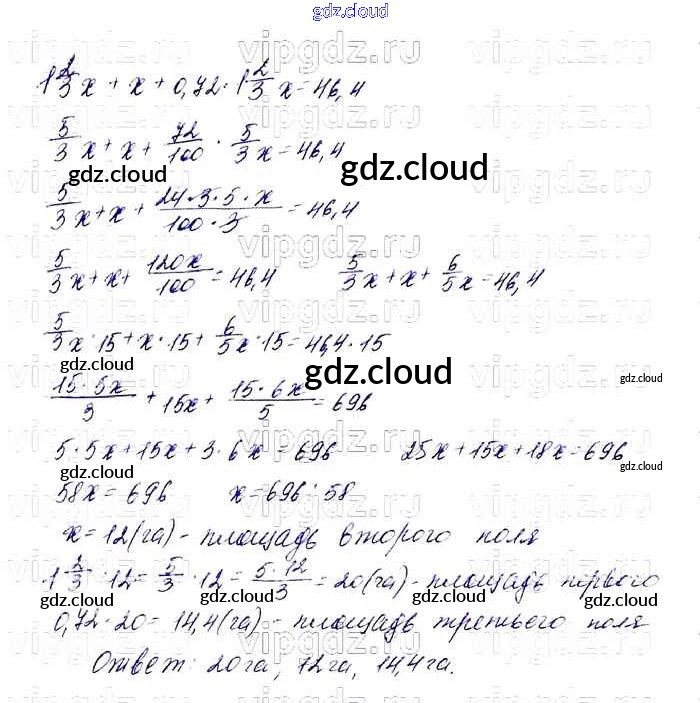 gdz.cloud
1 2/3 x + x + 0,72 · 1 2/3 x = 46,4
5/3 x + x + 72/100 · 5/3 x = 46,4
gdz.cloud gdz.cloud
5/3 x + x + 24·3·5·x/100·3 = 46,4
5/3 x + x + 120x/100 = 46,4 5/3 x + x + 6/5 x = 46,4
gdz.cloud
5/3 x · 15 + x · 15 + 6/5 x · 15 = 46,4 · 15
gdz.cloud gdz.cloud gdz.cloud
15·5x/3 + 15x + 15·6x/5 = 696
5·5x + 15x + 3·6x = 696 25x + 15x + 18x = 696
gdz.cloud gdz.cloud
58x = 696 x = 696 : 58
gdz.cloud
x = 12 (га) - площадь второго поля
1 2/3 · 12 = 5/3 · 12 = 5·12/3 = 20 (га) - площадь первого
gdz.cloud gdz.cloud gdz.cloud
0,72 · 20 = 14,4 (га) - площадь третьего поля
Ответ: 20 га, 72 га, 14,4 га.
vipgdz.ru